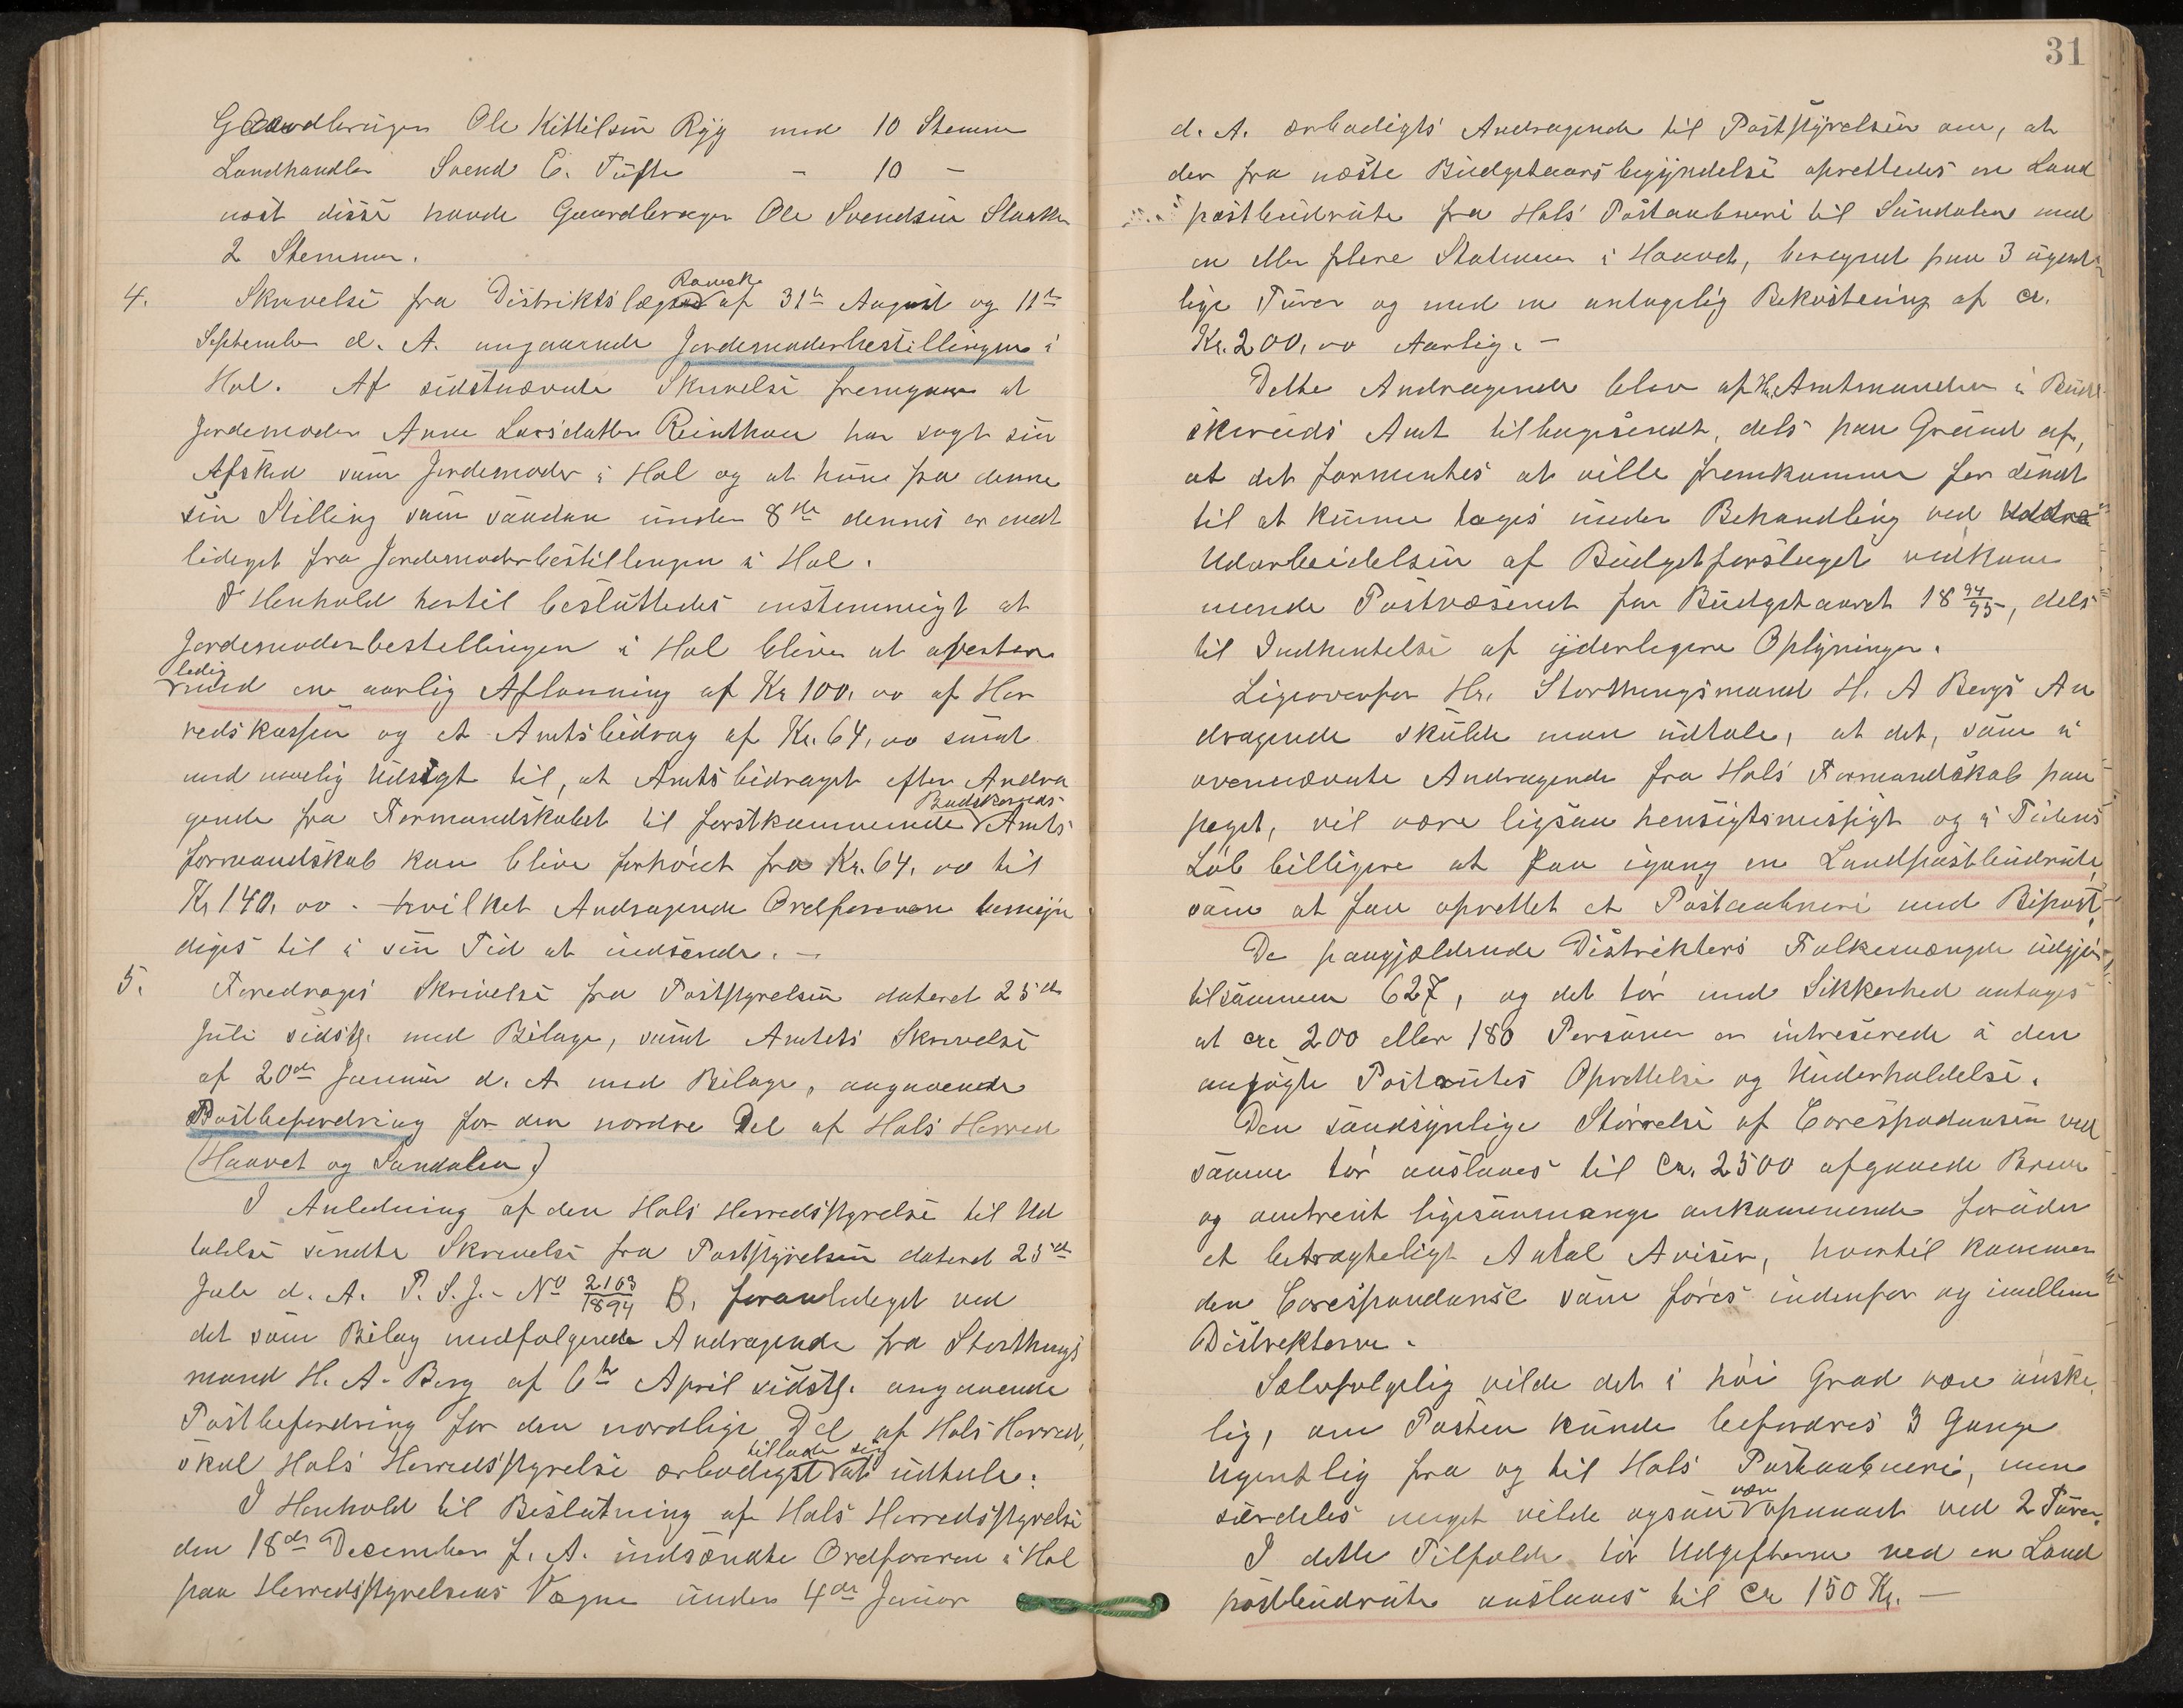 Gaardbruger Ole Kittilsen Rygg med 10 Stemmer
Landhandler Svend E. Tufte - 10 -
næst disse havde Gaardbruger Ole Svendsen Slaatto
2 Stemmer.
4. Skrivelse fra Distriktslæge Ramsk af 31te August og 11te
September d. A. angaaende Jordemoderbestillingen i
Hol. Af sidstnævnte Skrivelse fremgaar at
Jordemoder Anne Larsdatter Reinthon har søgt sin
Afsked som Jordemoder i Hol og at hun fra denne
sin Stilling som saadan under 8de dennes er ent
lediget fra Jordemoderbestillingen i Hol.
I Henhold hertil besluttedes enstemmigt at
Jordemoderbestillingen i Hol bliver at avertere
ledig med en aarlig Aflønning af Kr 100,00 af Her
redskassen og et Amtsbidrag af Kr. 64,00 samt
med mulig Udsigt til, at Amtsbidraget efter Andra
gende fra Formandskabet til førstkommende Buskeruds Amts
formandskab kan blive forhøiet fra Kr. 64,00 til
Kr 140,00 - hvilket Andragende Ordføreren bemyn
diges til i sin Tid at indsende. -
5. Foredroges Skrivelse fra Poststyrelsen dateret 25de
Juli sidstl. med Bilage, samt Amtets Skrivelse
af 20de Januar d. A. med Bilage, angaaende
Postbefordring for den nordre Del af Hols Herred
(Haavet og Sundalen.)
I Anledning af den Hols Herredsstyrelse til Ud
talelse sendte Skrivelse fra Poststyrelsen dateret 25de
Juli d. A. P. S. J. - No 2163/1894 B. foranlediget ved
det som Bilag medfølgende Andragende fra Storthings
mand H. A. Berg af 6te April sidstl. angaaende
Postbefordring for den nordlige Del af Hols Herred,
skal Hols Herredsstyrelse ærbødigst tillade sig at udtale:
I Henhold til Beslutning af Hols Herredsstyrelse
den 18de December f. A. indsendte Ordføreren i Hol
paa Herredsstyrelsens Vegne under 4de Januar
31
d. A. ærbødigts Andragende til Poststyrelsen om, at
der fra næste Budgetaars begyndelse oprettedes en Land
postbudrute fra Hols Postaabneri til Sundalen med
en eller flere Stationer i Haavet, beregnet paa 3 ugent
lige Turer og med en antagelig Bekostning af ca.
Kr. 200,00 Aarlig. -
Dette Andragende blev af Hr. Amtmanden i Busk
eruds Amt tilbagesendt, dels paa Grund af,
at det formentes at ville fremkomme for sendt
til at kunne tages under Behandling ved Uddra
Udarbeidelsen af Budgetforslaget vedkom
mende Postvæsenet for Budgetaaret 18 94/95, dels
til Indhentelse af yderligere Oplysninger.
Ligeoverfor Hr. Storthingsmand H. A Bergs An
dragende skulde man udtale, at det, som i
ovennævnte Andragende fra Hols Formandskab paa
peget, vil være ligesaa hensigtsmessigt og i Tidens
Løb billigere at faa igang en Landpostbudrute,
som at faa oprettet et Postaabneri med Bipost.
De paagjældende Distrikters Folkemængde udgjør
tilsammen 627, og det tør med Sikkerhed antages
at ca 200 eller 180 Personer er intreserede i den
ansøgte Postrutes Oprettelse og Underholdelse.
Den sandsynlige Størrelse af Corespodansen ved
samme tør anslaaes til Ca. 2500 afgaaende Breve
og omtrent ligesaamange ankommende foruden
et betragteligt Antal Aviser, hvortil kommer
den Corespondanse som føres indenfor og imellem
Distrikterne.
Selvfølgelig vilde det i høi Grad være ønske
lig, om Posten kunde befordres 3 Gange
Ugentlig fra og til Hols Postaabneri, men
særdeles meget vilde ogsaa være opnaaet ved 2 Turer.
I dette Tilfælde tør Udgifterne ved en Land
postbudrute anslaaes til Ca 150 Kr. -